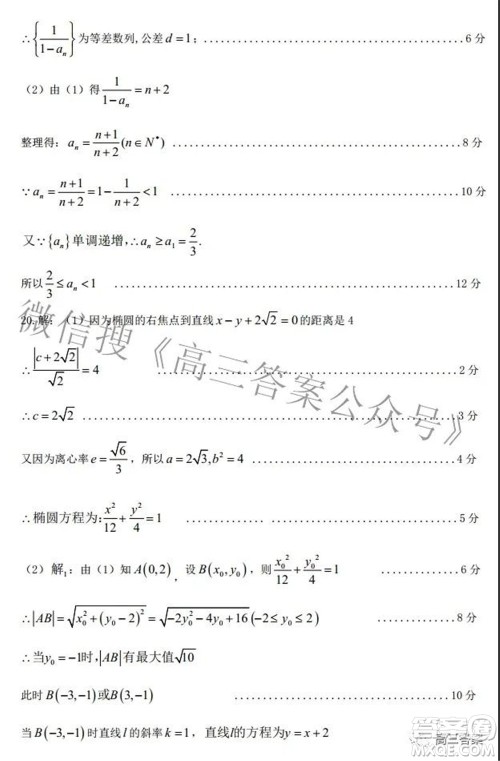 ∴{1/(1-aₙ)}为等差数列,公差 d=1; ........ 6 分
（2）由（1）得 1/(1-aₙ)=n+2
整理得: aₙ=(n+1)/(n+2)(n∈N*) ........ 8 分
∵aₙ=(n+1)/(n+2)=1-1/(n+2)<1 ........ 10 分
又∵{aₙ}单调递增,∴aₙ≥a₁=2/3.
所以 2/3≤aₙ<1 ........ 12 分
20.解:（1）因为椭圆的右焦点到直线 x-y+2√2=0 的距离是 4
∴|c+2√2|/√2=4 ........ 2 分
∴c=2√2 ........ 3 分
又因为离心率 e=√6/3, 所以 a=2√3,b²=4 ........ 4 分
∴椭圆方程为: x²/12+y²/4=1 ........ 5 分
（2）解₁: 由（1）知 A(0,2), 设 B(x₀,y₀), 则 x₀²/12+y₀²/4=1 ........ 6 分
∴|AB|=√(x₀²+(y₀-2)²)=√(-2y₀²-4y₀+16)(-2≤y₀≤2) ........ 8 分
∴当 y₀=-1时,|AB|有最大值√10
此时 B(-3,-1)或B(3,-1) ........ 10 分
当 B(-3,-1)时直线 l 的斜率 k=1, 直线l的方程为 y=x+2
微信搜《高三答案公众号》
高三答案
答案圈
MXQE.COM